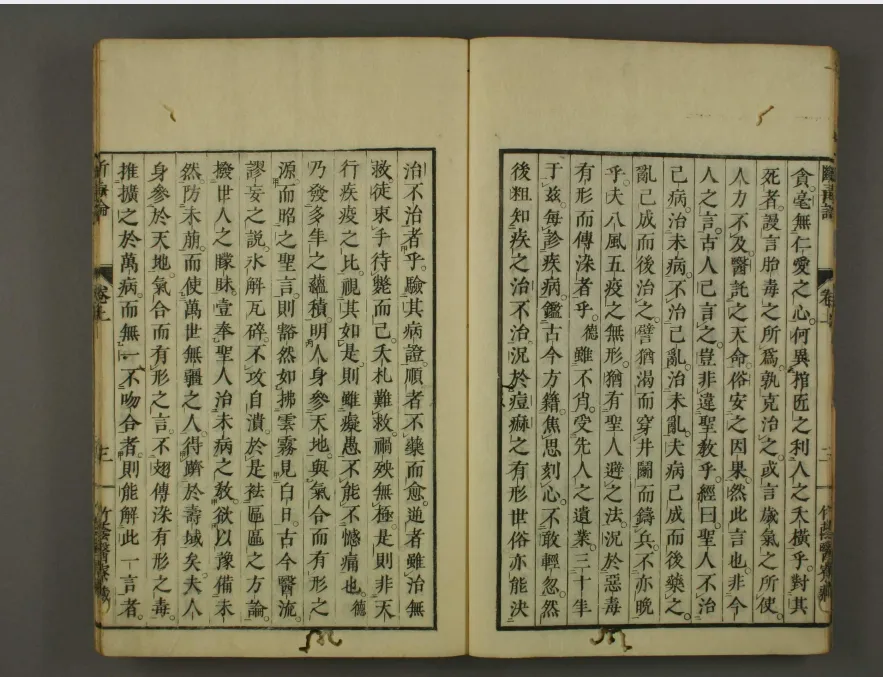 貪毫無仁愛之心何異棺匠之利人之夭橫乎對其
死者謾言胎毒之所爲孰克治之或言歲氣之所使
人力不及醫託之天命俗安之因果然此言也非今
人之言古人已言之豈非違聖教乎經曰聖人不治
已病治未病不治已亂治未亂夫病已成而後藥之
亂已成而後治之譬猶渴而穿井鬭而鑄兵不亦晚
乎夫八風五疫之無形猶有聖人避之法況於惡毒
有形而傳染者乎德雖不肖受先人之遺業三十年
于茲每診疾病鑑古今方籍焦思刻心不敢輕忽然
後粗知疾之治不治況於痘癪之有形世俗亦能決
治不治者乎驗其病證順者不藥而愈逆者雖治無
救徒束手待斃而已夭札難救禍殃無極是則非天
行疾疫之比視其如是則雖癡愚不能不憾痛也德
乃發多年之蘊積明人身參天地與氣合而有形之
源而昭之聖言則豁然如拂雲霧見白日古今醫流
謬妄之說氷解瓦碎不攻自潰於是袪區區之方論
撥世人之矇昧壹奉聖人治未病之教欲以豫備未
然防未崩而使萬世無疆之人得躋於壽域矣夫人
身參於天地氣合而有形之言不翅傳染有形之毒
推擴之於萬病而無一不吻合者則能解此一言者
卷上
三
竹蔭醫寮藏